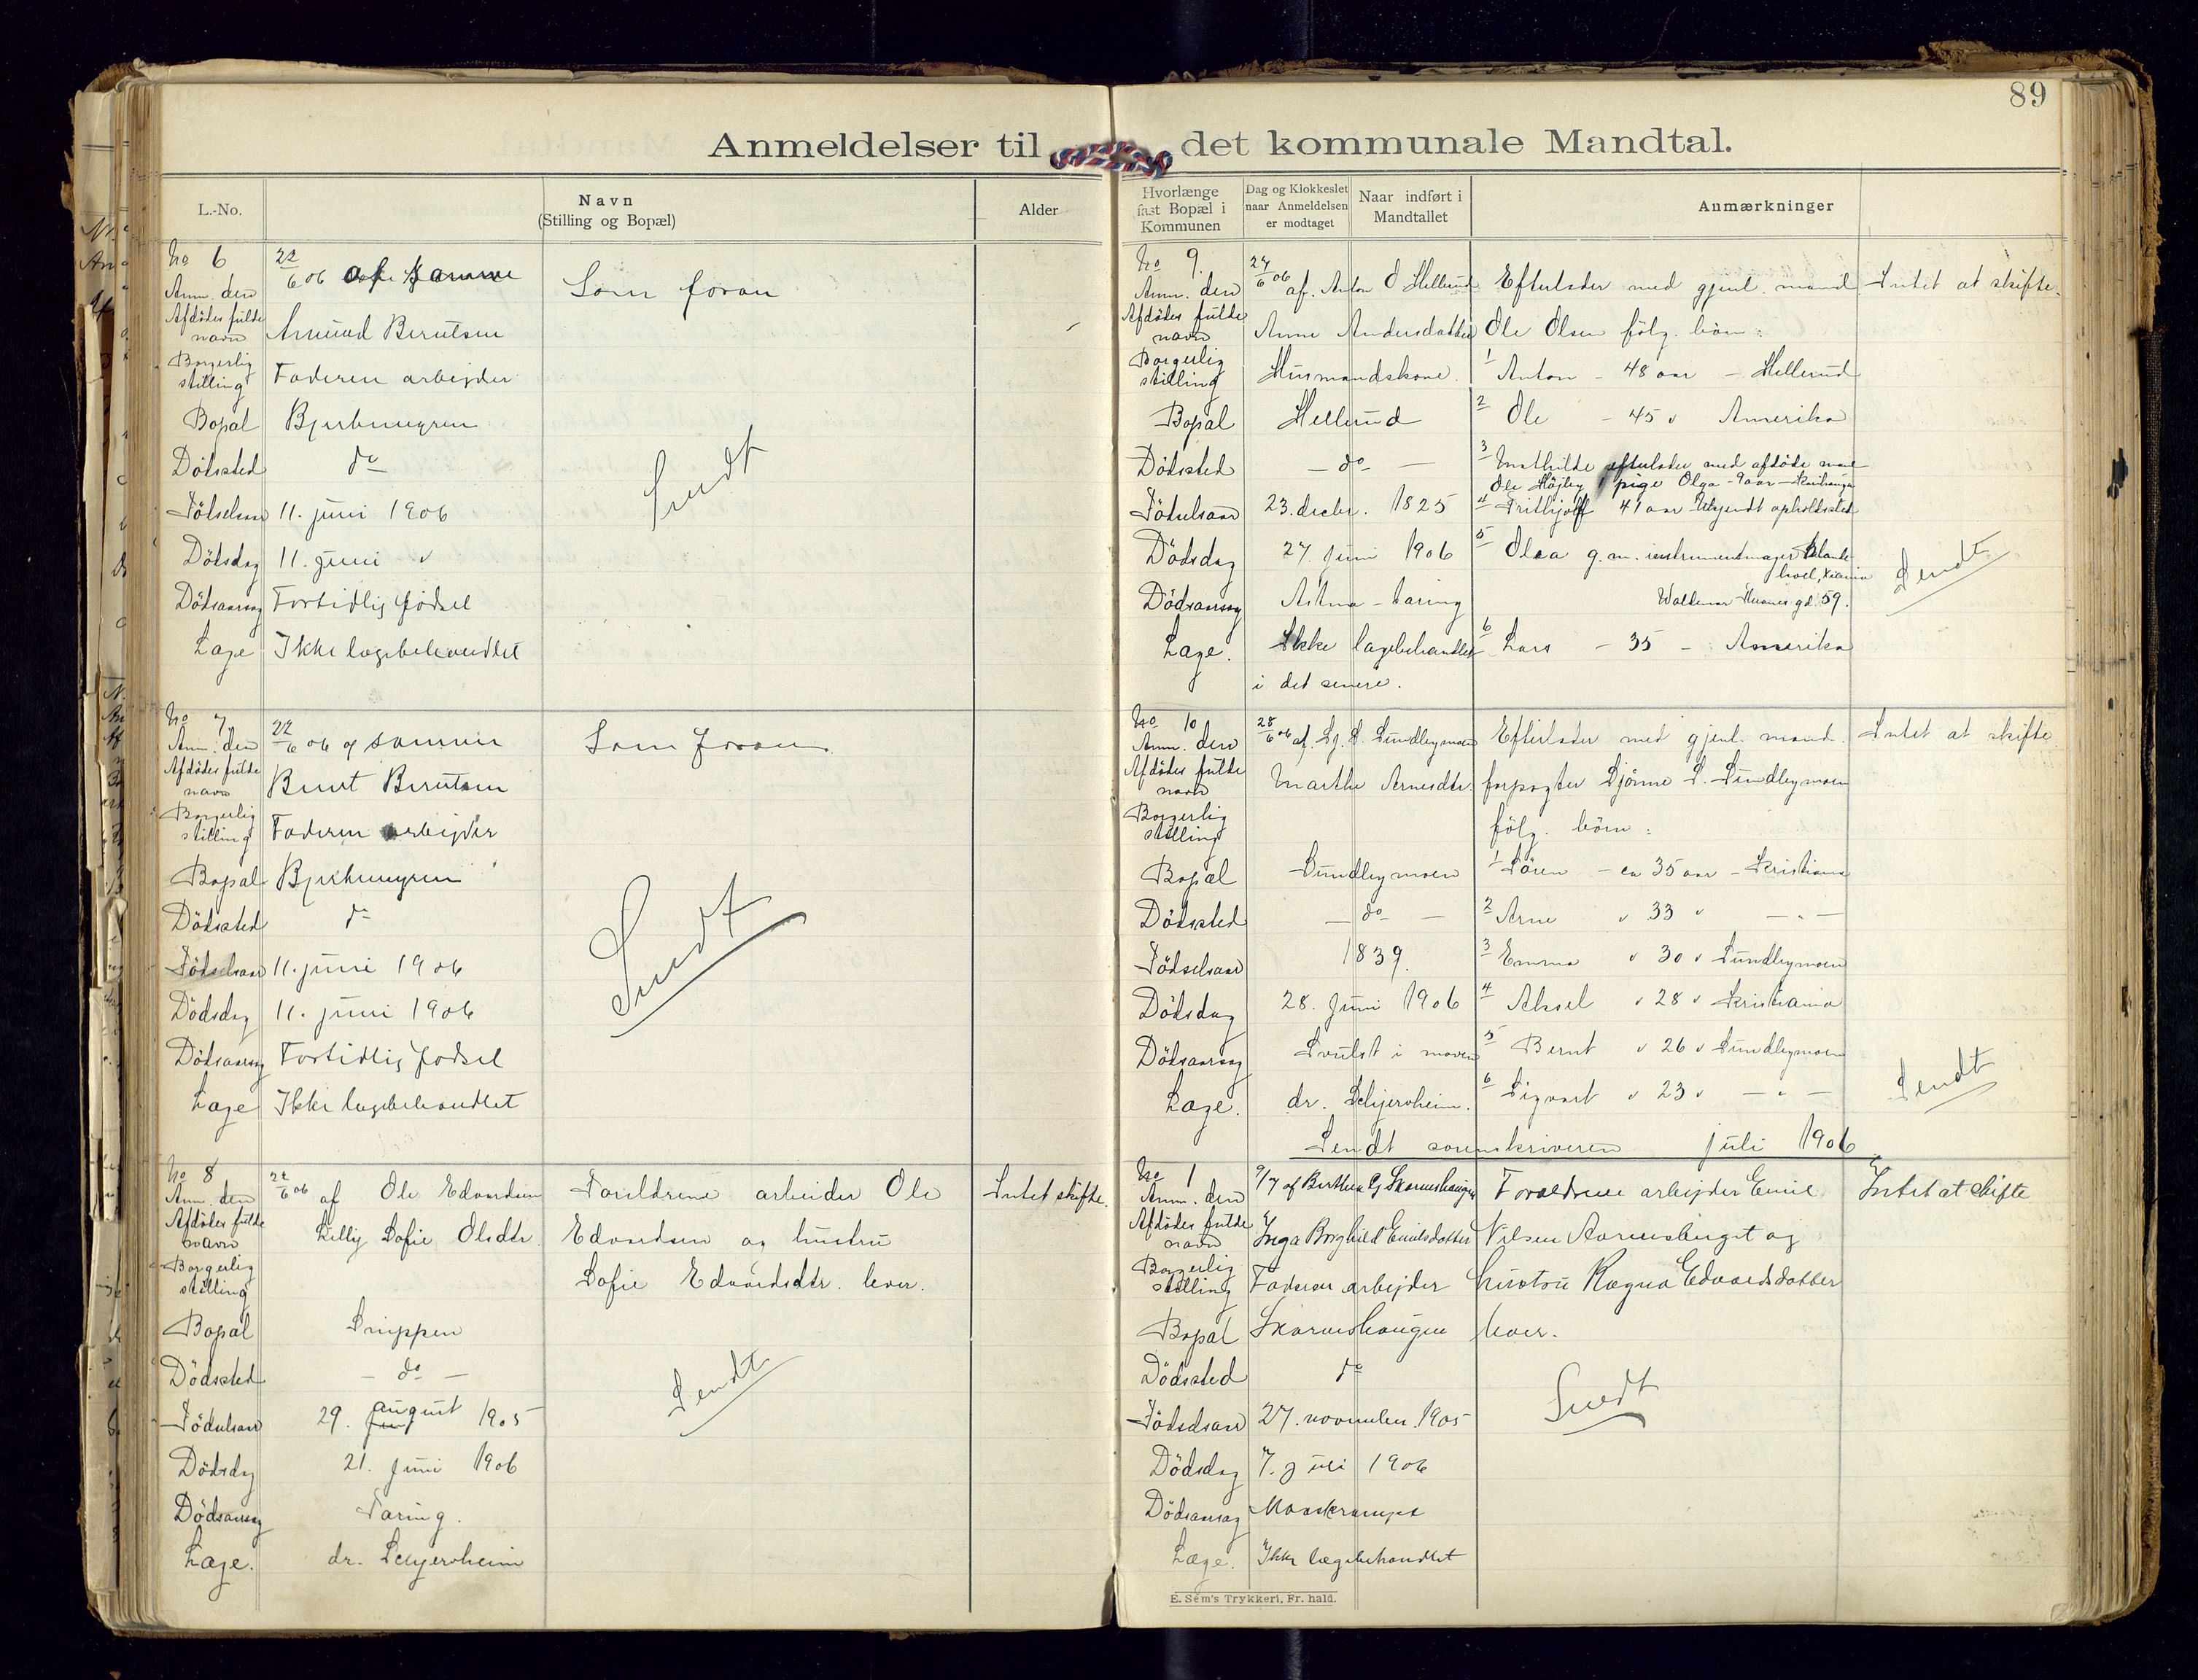 89
Anmeldelser til det kommunale Mandtal.
L.-No.
Navn
(Stilling og Bopæl)
Alder
No 6
Anm. den 22/6 06 af samme
Som foran
Afdødes fulde navn Amund Berntsen
Borgerlig stilling Faderen arbejder
Bopæl
Dødssted do
Sendt
Fødselsaar 11. juni 1906
Dødsdag 11. juni "
Dødsaarsag Fortidlig fødsel
Læge Ikke lægebehandlet
No 7
Anm. den 22/6 06 af samme
Som foran
Afdødes fulde navn Bernt Berntsen
Borgerlig stilling Faderen arbejder
Bopæl
Dødssted do
Sendt
Fødselsaar 11. juni 1906
Dødsdag 11. juni 1906
Dødsaarsag Fortidlig fødsel
Læge Ikke lægebehandlet
No 8
Anm. den 22/6 06 af Ole Edvardsen
Forældrene arbeider Ole
Intet skifte.
Afdødes fulde navn Lilly Sofie Olsdtr.
Edvardsen og hustru
Borgerlig stilling
Sofie Edvardsdtr. lever.
Bopæl
Dødssted — do —
Sendt
Fødselsaar 29. august 1905
Dødsdag 21. juni 1906
Dødsaarsag Tæring.
Læge. dr.
Hvorlænge fast Bopæl i Kommunen
Dag og Klokkeslet naar Anmeldelsen er modtaget
Naar indført i Mandtallet
Anmærkninger
No 9.
Anm. den 27/6 06 af. Anton O Hellerud
Efterlader med gjenl. mand
Intet at skifte.
Afdødes fulde navn Anne Andersdatter
Ole Olsen følg. børn:
Borgerlig stilling Husmandskone.
1 Anton – 48 aar – Hellerud
Bopæl Hellerud
2 Ole – 45 " Amerika
Dødssted — do —
3 Mathilde efterlader med afdøde mand
Ole 1 pige Olga – 9 aar –
Fødselsaar 23. decbr. 1825
4 Frithjoff 41 aar Ukjendt opholdssted
Dødsdag 27. juni 1906
5 Olea g.m. instrumentmager
Dødsaarsag Astma – tæring
gd. 59.
Sendt
Læge. Ikke lægebehandlet
6 Lars – 35 – Amerika
i det senere.
No 10
Anm. den 28/6 06 af.
Efterlader med gjenl. mand.
Intet at skifte
Afdødes fulde navn Marthe Arnesdtr.
forpagter
Borgerlig stilling
følg. børn:
Bopæl Sundbymoen
1 Søren – ca 35 aar – Kristiania
Dødssted — do —
2 Arne " 33 " — " —
Fødselsaar 1839.
3 Emma " 30 " Sundbymoen
Dødsdag 28. juni 1906
4 Aksel " 28 " Kristiania
Dødsaarsag Svulst i maven
5 Bernt " 26 " Sundbymoen
Læge. dr.
6 Sigvart " 23 " — " —
Sendt
Sendt sorenskriveren juli 1906
No 1
Anm. den 9/7 af
Forældrene arbejder Emil
Intet at skifte
Afdødes fulde navn Inga Borghild Emilsdatter
Nilsen og
Borgerlig stilling Faderen arbejder
hustru Ragna Edvardsdatter
Bopæl Skarneshaugen
lever.
Dødssted do
Sendt
Fødselsaar 27. november. 1905
Dødsdag 7. juli 1906
Dødsaarsag
Læge. Ikke lægebehandlet
E. Sem's Trykkeri, Fr. hald.